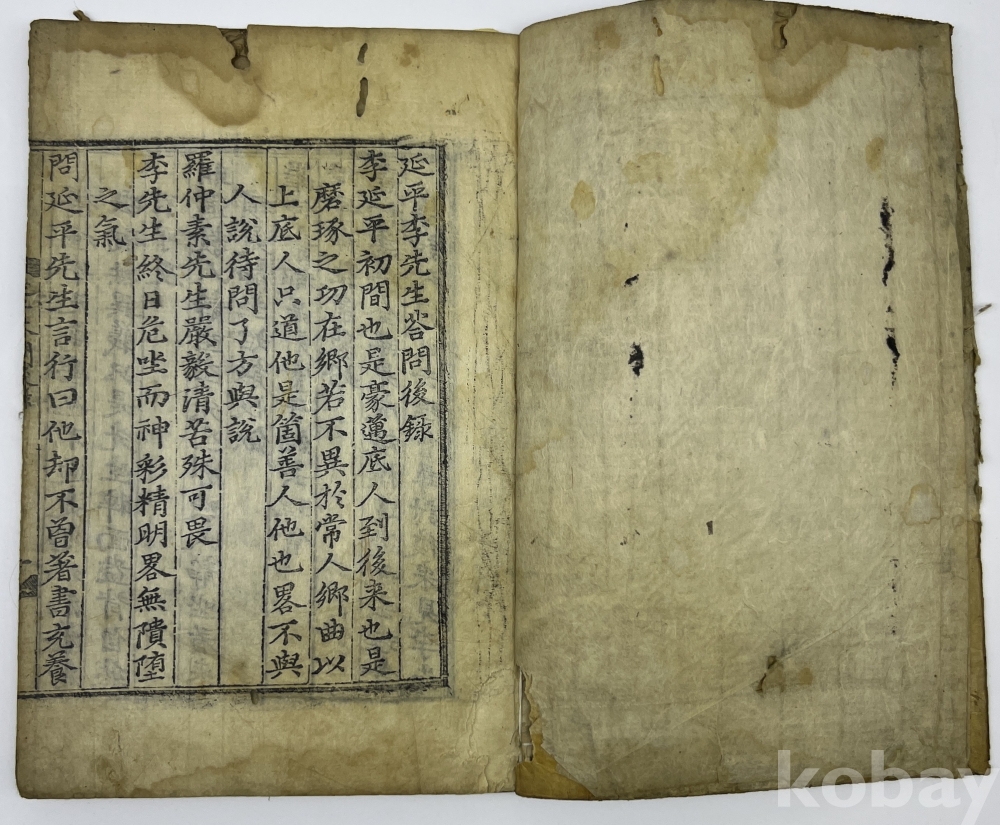 延平李先生答問後錄
李延平初間也是豪邁底人到後来也是
磨琢之功在鄉若不異於常人鄉曲以
上底人只道他是箇善人他也畧不與
人說待問了方與說
羅仲素先生嚴毅清苦殊可畏
李先生終日危坐而神彩精明畧無隤堕
之氣
問延平先生言行曰他却不曾著書充養
kobay